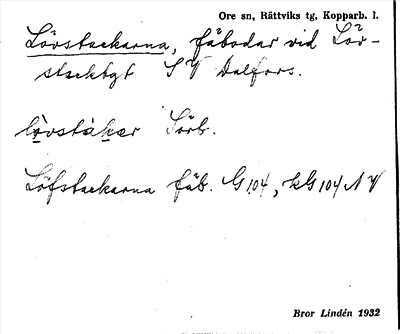 Ore sn, Rättviks tg, Kopparb. l.
Lövstackarna, fäbodar vid Löv-
stacktgt S V Dalfors.
lövstàkar Lörb.
Löfstackarna fäb. G 104, kG 104 N V
Bror Lindén 1932